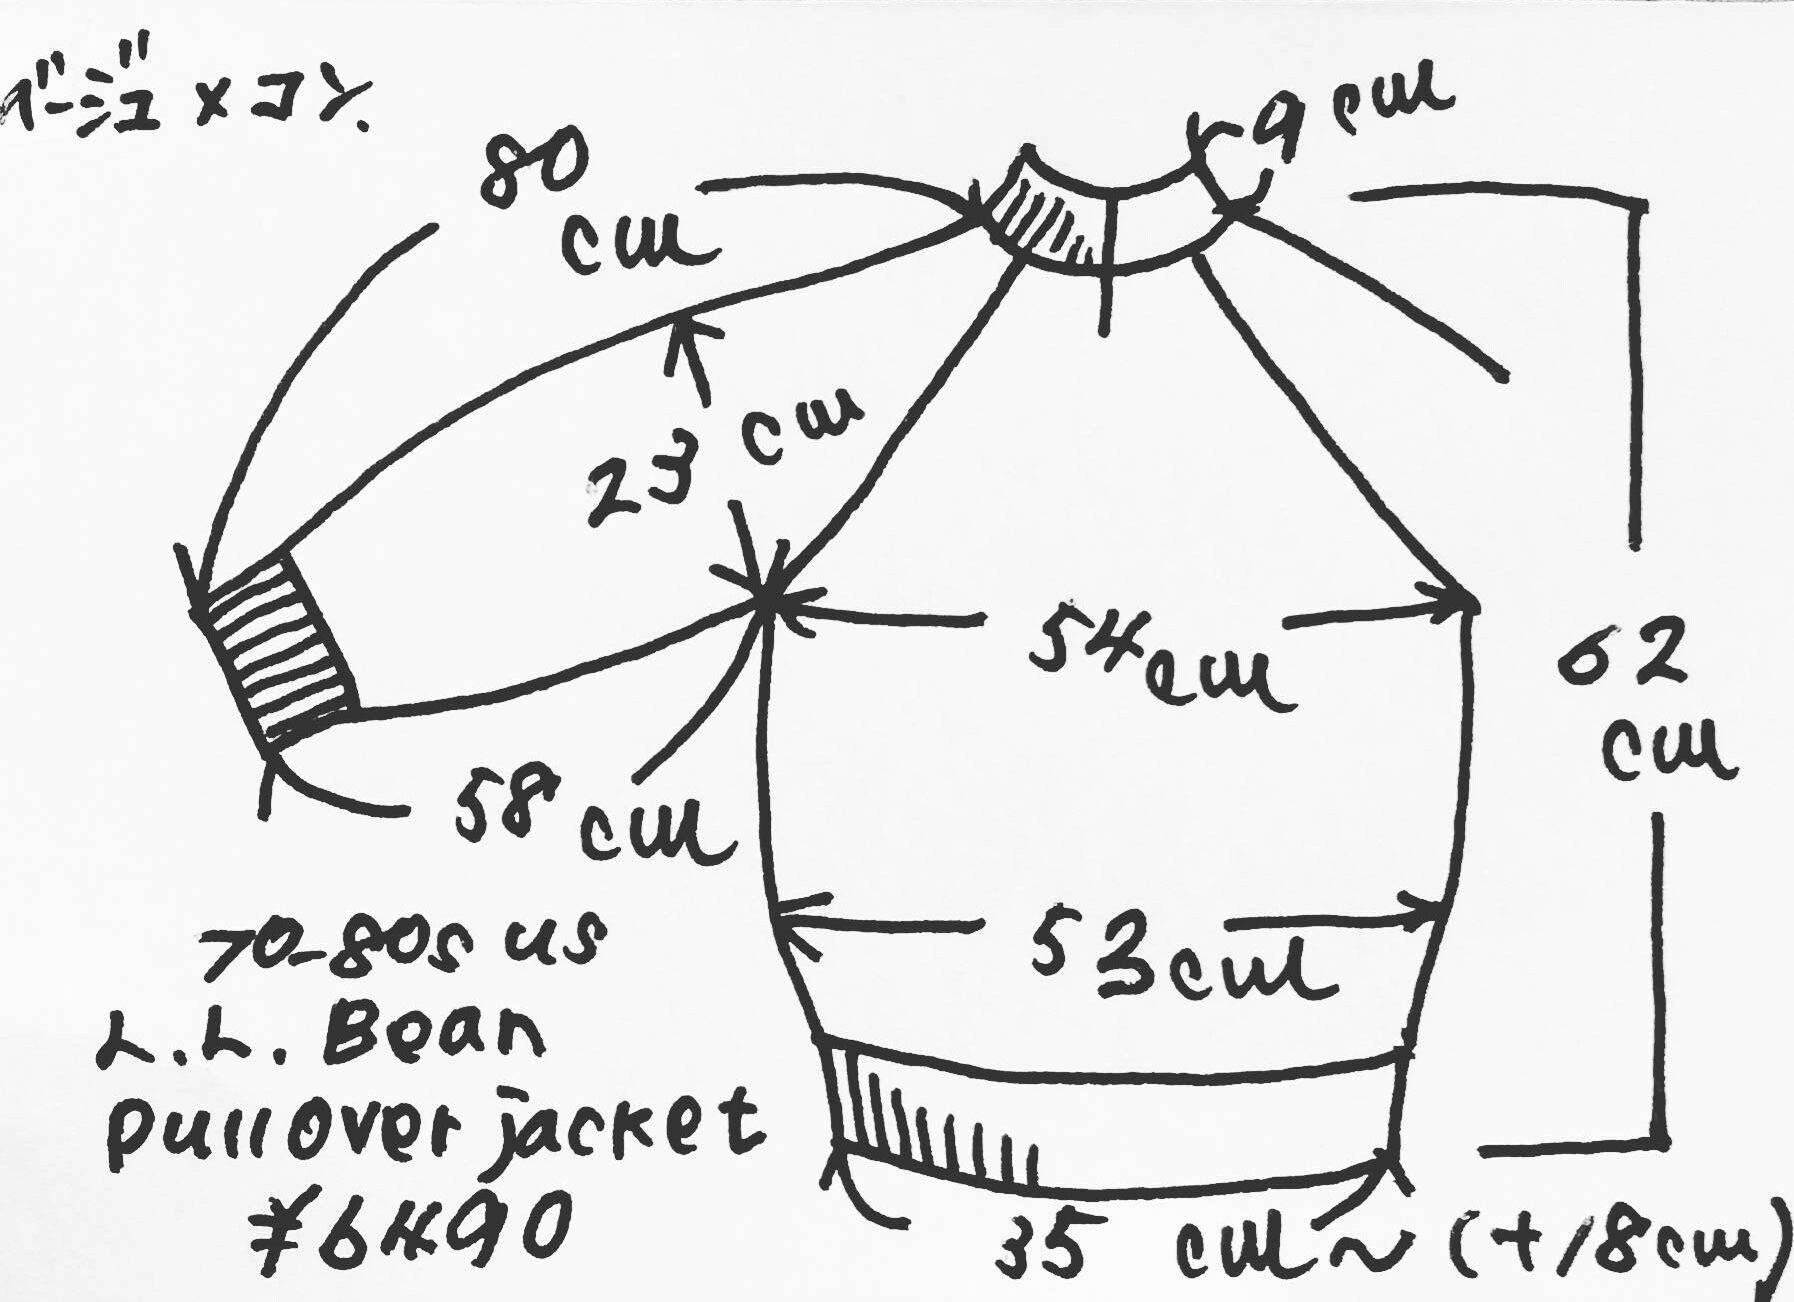 ベージュ×コン.
80
cm
9cm
23 cm
54cm
62
cm
58 cm
53cm
70-80s us
L.L. Bean
pullover jacket
¥6490
35 cm~ (+18cm)